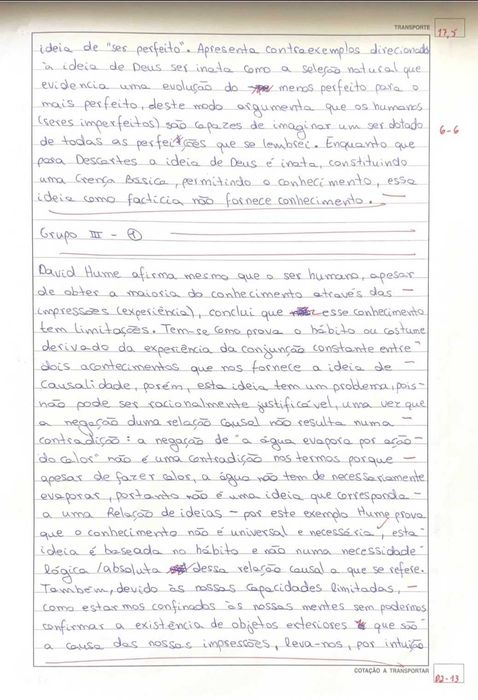 TRANSPORTE
17,5
ideia de "ser perfeito". Apresenta contraexemplos direcionado
à ideia de Deus ser inata como a seleção natural que
evidencia uma evolução do menos perfeito para o
mais perfeito, deste modo argumenta que os humanos
(seres imperfeitos) são capazes de imaginar um ser dotado
6-6
de todas as perfeições que se lembrei. Enquanto que
para Descartes a ideia de Deus é inata, constituindo
uma Crença Básica, permitindo o conhecimento, essa
ideia como factícia não fornece conhecimento.
Grupo III - 1
David Hume afirma mesmo que o ser humano, apesar
de obter a maioria do conhecimento através das
impressões (experiência), conclui que esse conhecimento
tem limitações. Tem-se como prova o hábito ou costume
derivado da experiência da conjunção constante entre
dois acontecimentos que nos fornece a ideia de
causalidade, porém, esta ideia tem um problema, pois
não pode ser racionalmente justificável, uma vez que
a negação duma relação causal não resulta numa
contradição: a negação de "a água evapora por ação
do calor" não é uma contradição nos termos porque
apesar de fazer calor, a água não tem de necessariamente
evaporar, portanto não é uma ideia que corresponda
a uma Relação de ideias - por este exemplo Hume prova
que o conhecimento não é universal e necessário, esta
ideia é baseada no hábito e não numa necessidade
lógica/absoluta dessa relação causal a que se refere.
Também, devido às nossas capacidades limitadas,
como estarmos confinados às nossas mentes sem podermos
confirmar a existência de objetos exteriores que são
a causa das nossas impressões, leva-nos, por intuição
COTAÇÃO A TRANSPORTAR